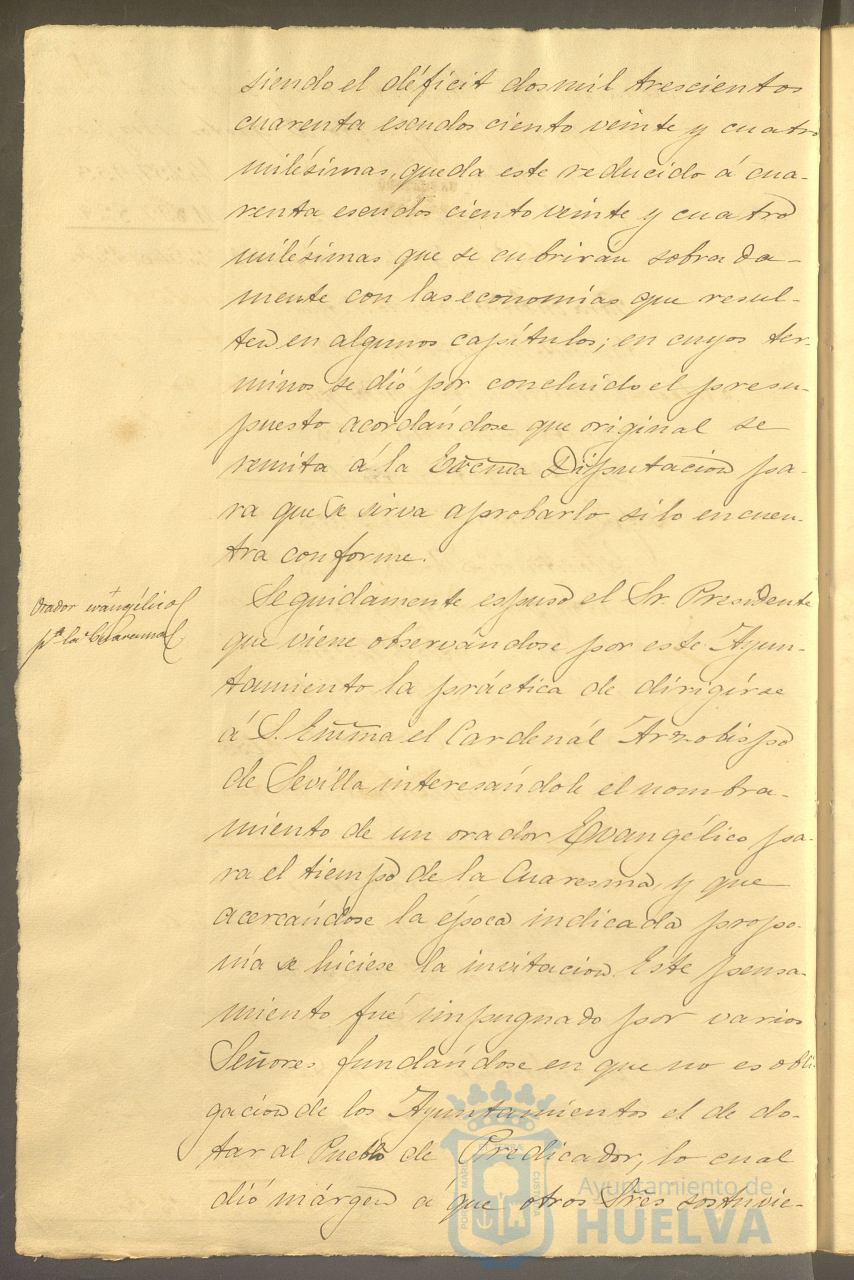 siendo el déficit dos mil trescientos
cuarenta escudos ciento veinte y cuatro
milésimas, queda este reducido á cua-
renta escudos ciento veinte y cuatro
milésimas que se cubriran sobrada-
mente con las economías que resul-
ten en algunos capítulos; en cuyos ter-
minos se dió por concluido el presu-
puesto acordándose que original se
remita á la Excma Diputacion pa-
ra que se sirva aprobarlo si lo encuen-
tra conforme.
Orador evangélico
pª la Cuaresma
Seguidamente espuso el Sr. Presidente
que viene observándose por este Ayun-
tamiento la práctica de dirigirse
á S. Emma el Cardenál Arzobispo
de Sevilla interesándole el nombra-
miento de un orador Evangélico pa-
ra el tiempo de la Cuaresma, y que
acercándose la época indicada propo-
nía se hiciese la invitacion. Este pensa-
miento fué impugnado por varios
Señores fundándose en que no es obli-
gacion de los Ayuntamientos el de do-
tar al Pueblo de Predicador, lo cual
dió márgen á que otros Sres sostuvie-
Ayuntamiento de
HUELVA